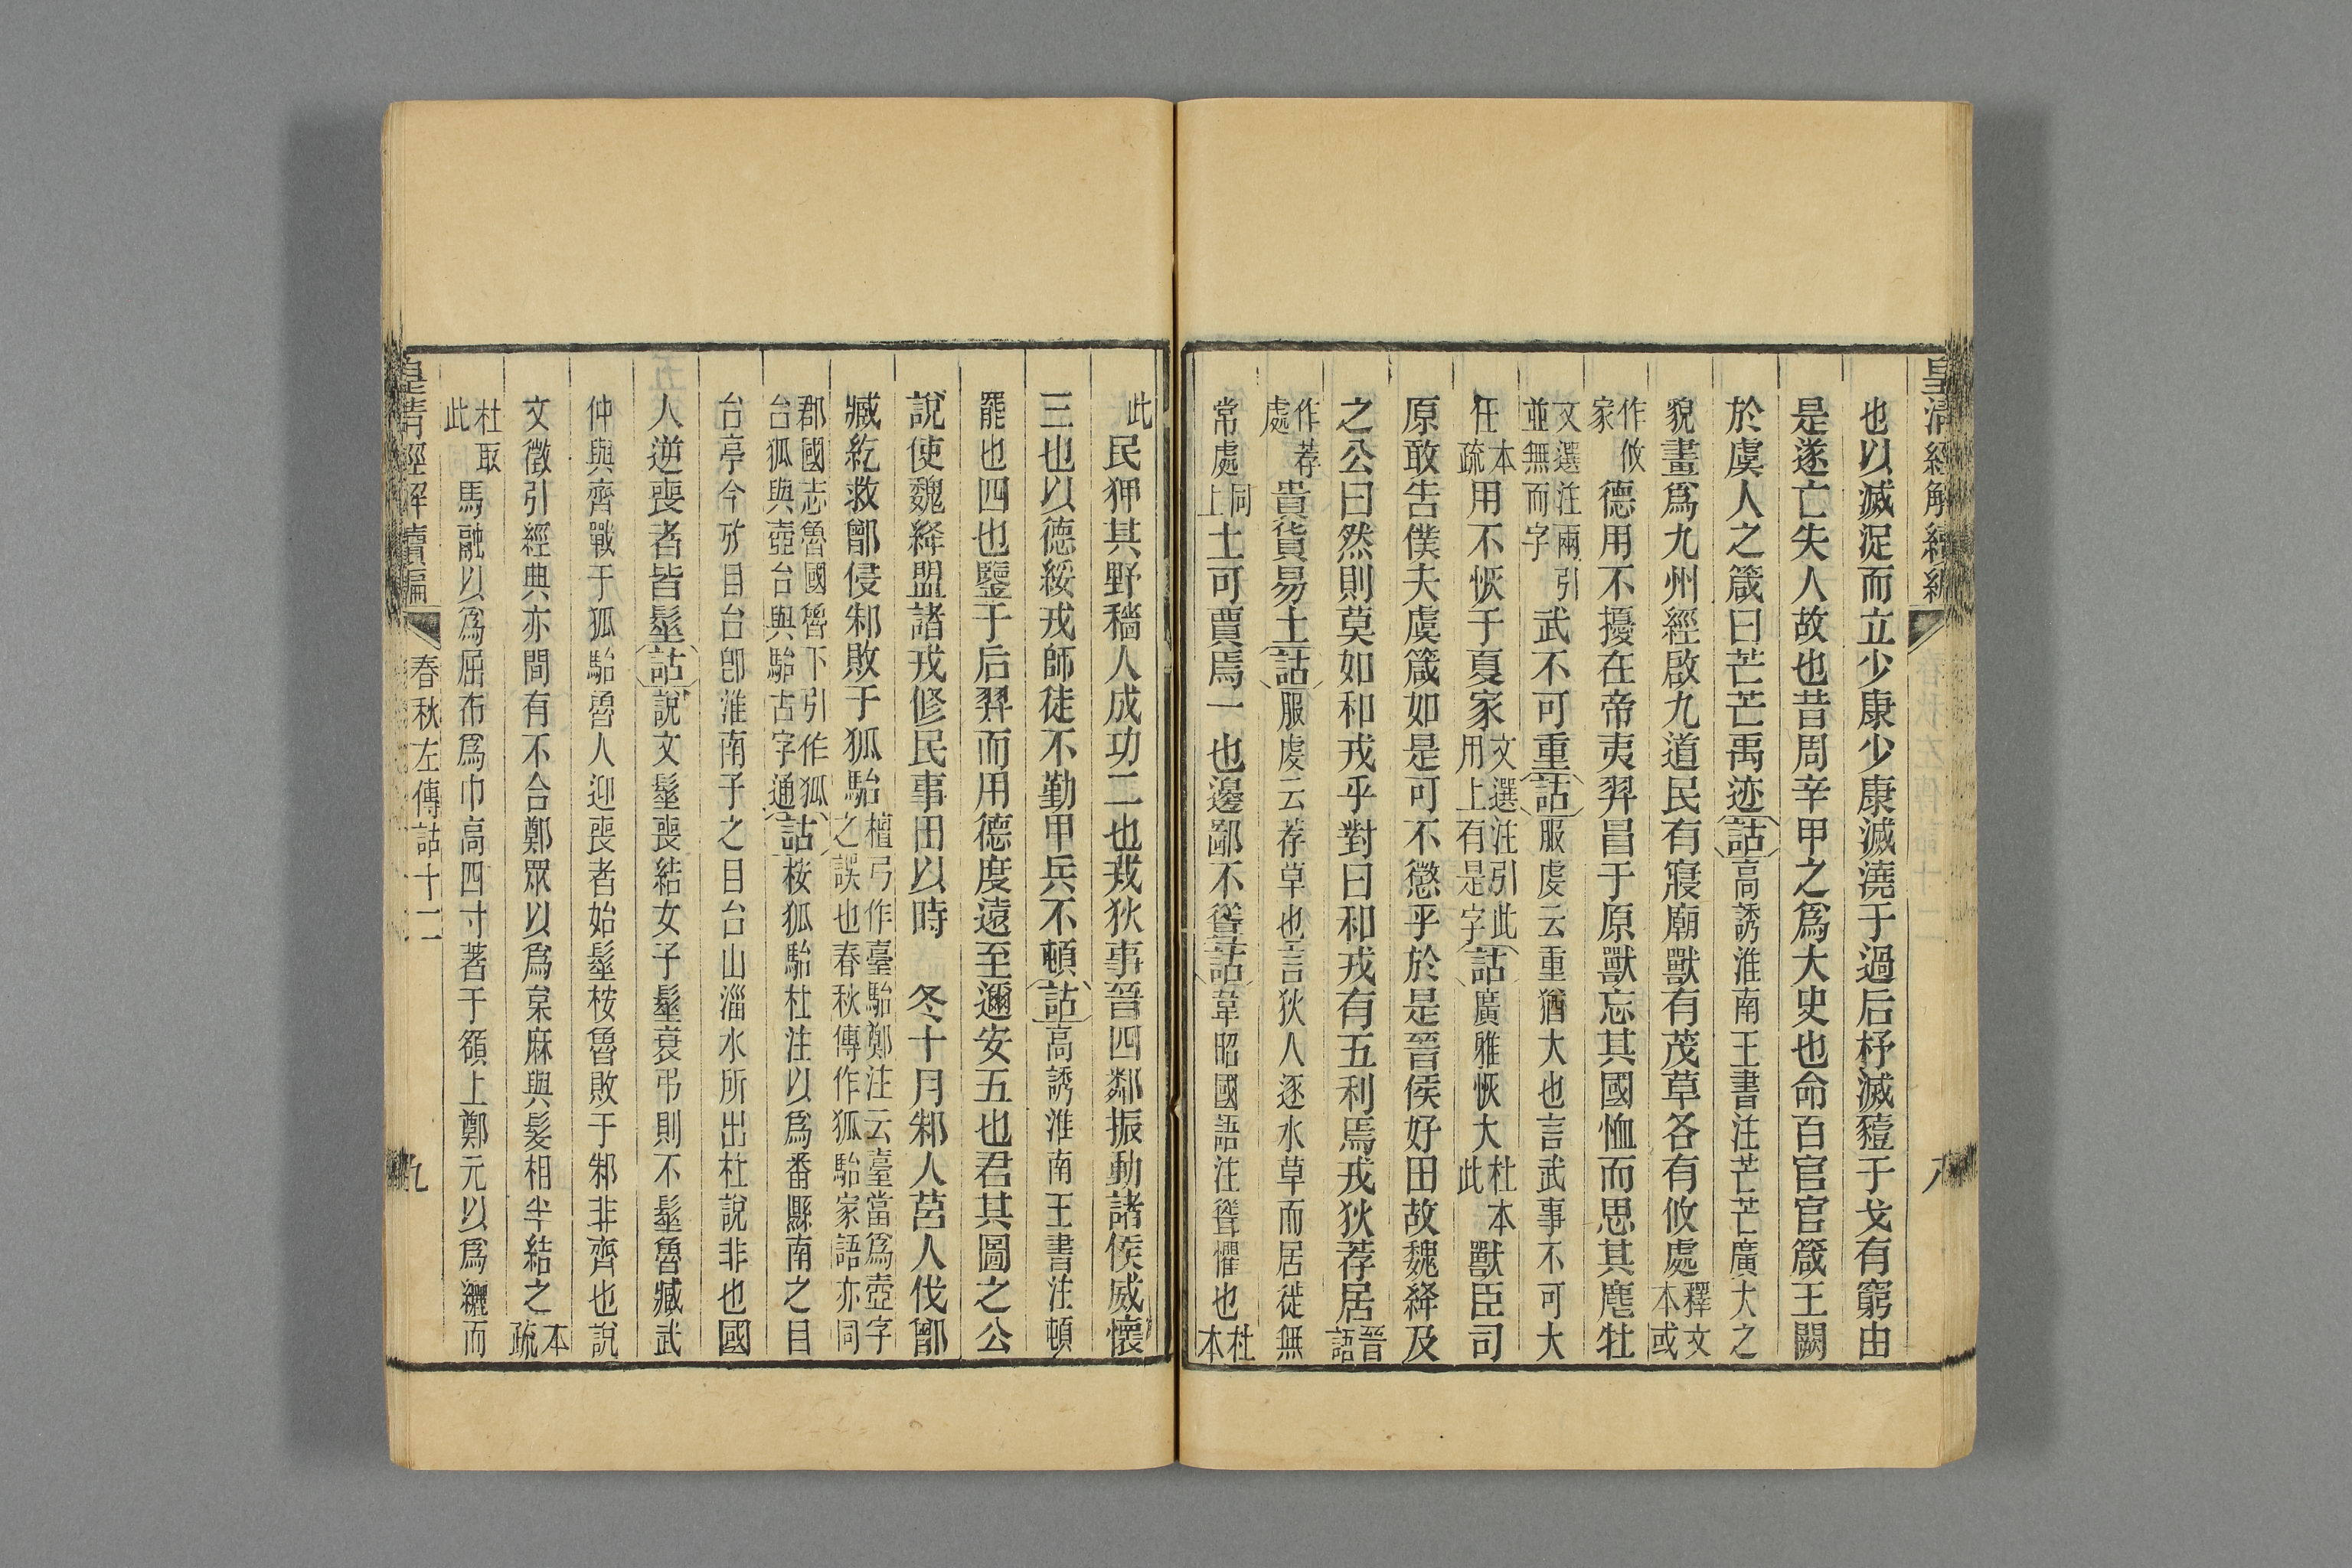 皇清經解續編
八
也以滅浞而立少康少康滅澆于過后杼滅豷于戈有窮由
是遂亡失人故也昔周辛甲之爲大史也命百官官箴王闕
於虞人之箴曰芒芒禹迹詁高誘淮南王書注芒芒廣大之
貌畫爲九州經啟九道民有寢廟獸有茂草各有攸處釋文本或
作攸家德用不擾在帝夷羿昌于原獸忘其國恤而思其麀牡
文選注兩引並無而字武不可重詁服虔云重猶大也言武事不可大
任本疏用不恢于夏家文選注引此用上有是字詁廣雅恢大杜本此獸臣司
原敢告僕夫虞箴如是可不懲乎於是晉侯好田故魏絳及
之公曰然則莫如和戎乎對曰和戎有五利焉戎狄荐居晉語
作荐處貴貨易土詁服虔云荐草也言狄人逐水草而居徙無
常處同上土可賈焉一也邊鄙不聳詁韋昭國語注聳懼也杜本
此民狎其野穡人成功二也戎狄事晉四鄰振動諸侯威懷
三也以德綏戎師徒不勤甲兵不頓詁高誘淮南王書注頓
罷也四也鑒于后羿而用德度遠至邇安五也君其圖之公
說使魏絳盟諸戎修民事田以時　冬十月邾人莒人伐鄫
臧紇救鄫侵邾敗于狐駘檀弓作臺駘鄭注云臺當爲壺字之誤也春秋傳作狐駘家語亦同
郡國志魯國魯下引作狐台狐與壺台與駘古字通詁桉狐駘杜注以爲番縣南之目
台亭今攷目台卽淮南子之目台山淄水所出杜說非也國
人逆喪者皆髽詁說文髽喪結女子髽衰弔則不髽魯臧武
仲與齊戰于狐駘魯人迎喪者始髽桉魯敗于邾非齊也說
文徵引經典亦間有不合鄭眾以爲枲麻與髮相半結之本疏
杜取此馬融以爲屈布爲巾高四寸著于頟上鄭元以爲纚而
皇清經解續編
春秋左傳詁十二
九